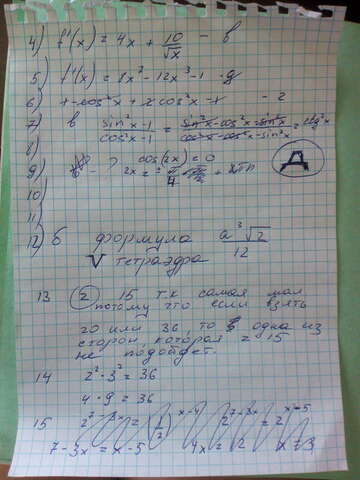 4) f'(x) = 4x + 10/√x - в
5) f'(x) = 8x³ - 12x³ - 1 · д
6) x - cos²x + x cos²x - x - 2
7) в (sin²x - 1)/(cos²x - 1) =
8)
9) - ? cos(2x) = 0 Д
2x = ± π/4 + 2πn
10)
11
12) б формула a³√2/12
V тетраэдра
13 2 15 т.к самая мал
потому что если взять
20 или 36, то одна из
сторон, которая = 15
не подойдет.
14 2² · 3² = 36
4 · 9 = 36
15
7 - 3x = x - 5 4x = 12 x = 3